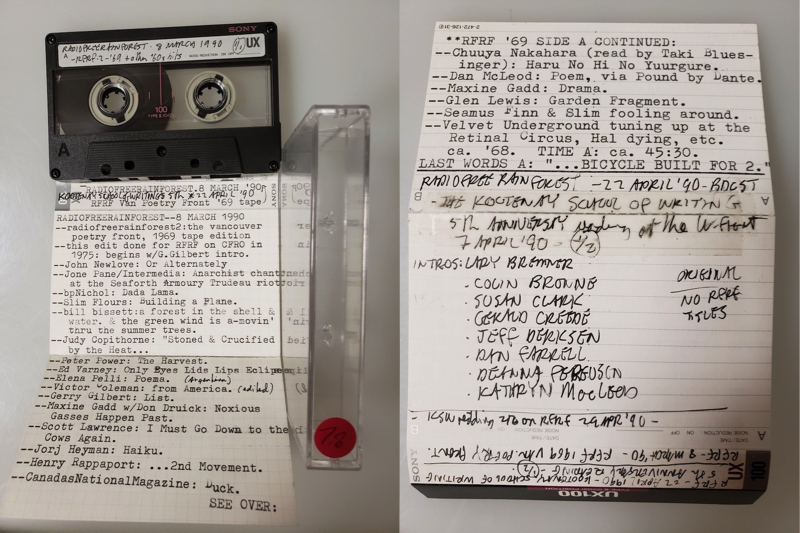 SONY
RADIOFREERAINFOREST - 8 MARCH 1990
A -RFRF-2-'69 + other '60s hits
UX
100
TYPE II
A
RADIOFREERAINFOREST.8 MARCH '90
KOOTENAY SCHOOL of WRITING 5th x 21 APRIL '90
RFRF Van Poetry Front '69 tape)
RADIOFREERAINFOREST--8 MARCH 1990
--radiofreerainforest2:the vancouver
poetry front, 1969 tape edition
--this edit done for RFRF on CFRO in
1975: begins w/G.Gilbert intro.
--John Newlove: Or Alternately
--Jone Pane/Intermedia: Anarchist chant
at the Seaforth Armoury Trudeau riot
--bpNichol: Dada Lama.
--Slim Flours: Building a Plane.
--bill bissett:a forest in the shell &
water. & the green wind is a-movin'
thru the summer trees.
--Judy Copithorne: "Stoned & Crucified
by the Heat...
--Peter Power: The Harvest.
--Ed Varney: Only Eyes Lids Lips Eclipse
--Elena Pelli: Poema. (Argentean)
--Victor Coleman: from America. (edited)
--Gerry Gilbert: List.
--Maxine Gadd w/Don Druick: Noxious
Gasses Happen Past.
--Scott Lawrence: I Must Go Down to the
Cows Again.
--Jorj Heyman: Haiku.
--Henry Rappaport: ...2nd Movement.
--CanadasNationalMagazine: Duck.
SEE OVER:
1/2
2-472-126-31
**RFRF '69 SIDE A CONTINUED:
--Chuuya Nakahara (read by Taki Blues-
inger): Haru No Hi No Yuurgure.
--Dan McLeod: Poem, via Pound by Dante.
--Maxine Gadd: Drama.
--Glen Lewis: Garden Fragment.
--Seamus Finn & Slim fooling around.
--Velvet Underground tuning up at the
Retinal Circus, Hal dying, etc.
ca. '68. TIME A: ca. 45:30.
LAST WORDS A: "...BICYCLE BUILT FOR 2."
RADIOFREERAINFOREST -22 APRIL '90-BDCST
-THE KOOTENAY SCHOOL of WRITING
5TH ANNIVERSARY reading at the W. Front
7 APRIL '90 - (1/2)
INTROS: LARY BREMNER
ORIGINAL
NO RFRF
TITLES
· COLIN BROWNE
· SUSAN CLARK
· GERALD CREEDE
· JEFF DERKSEN
· DAN FARRELL
· DEANNA FERGUSON
· KATHRYN MacLEOD
DATE · TIME
NOISE REDUCTION ON OFF
A
B
- RFRF - 8 MARCH '90 - RFRF 1969 VAN. POETRY FRONT.
RFRF - 22 APRIL 1990 - KOOTENAY SCHOOL OF WRITING
5th ANNIVERSARY READING (1/2)
SONY
UX
100
UX100